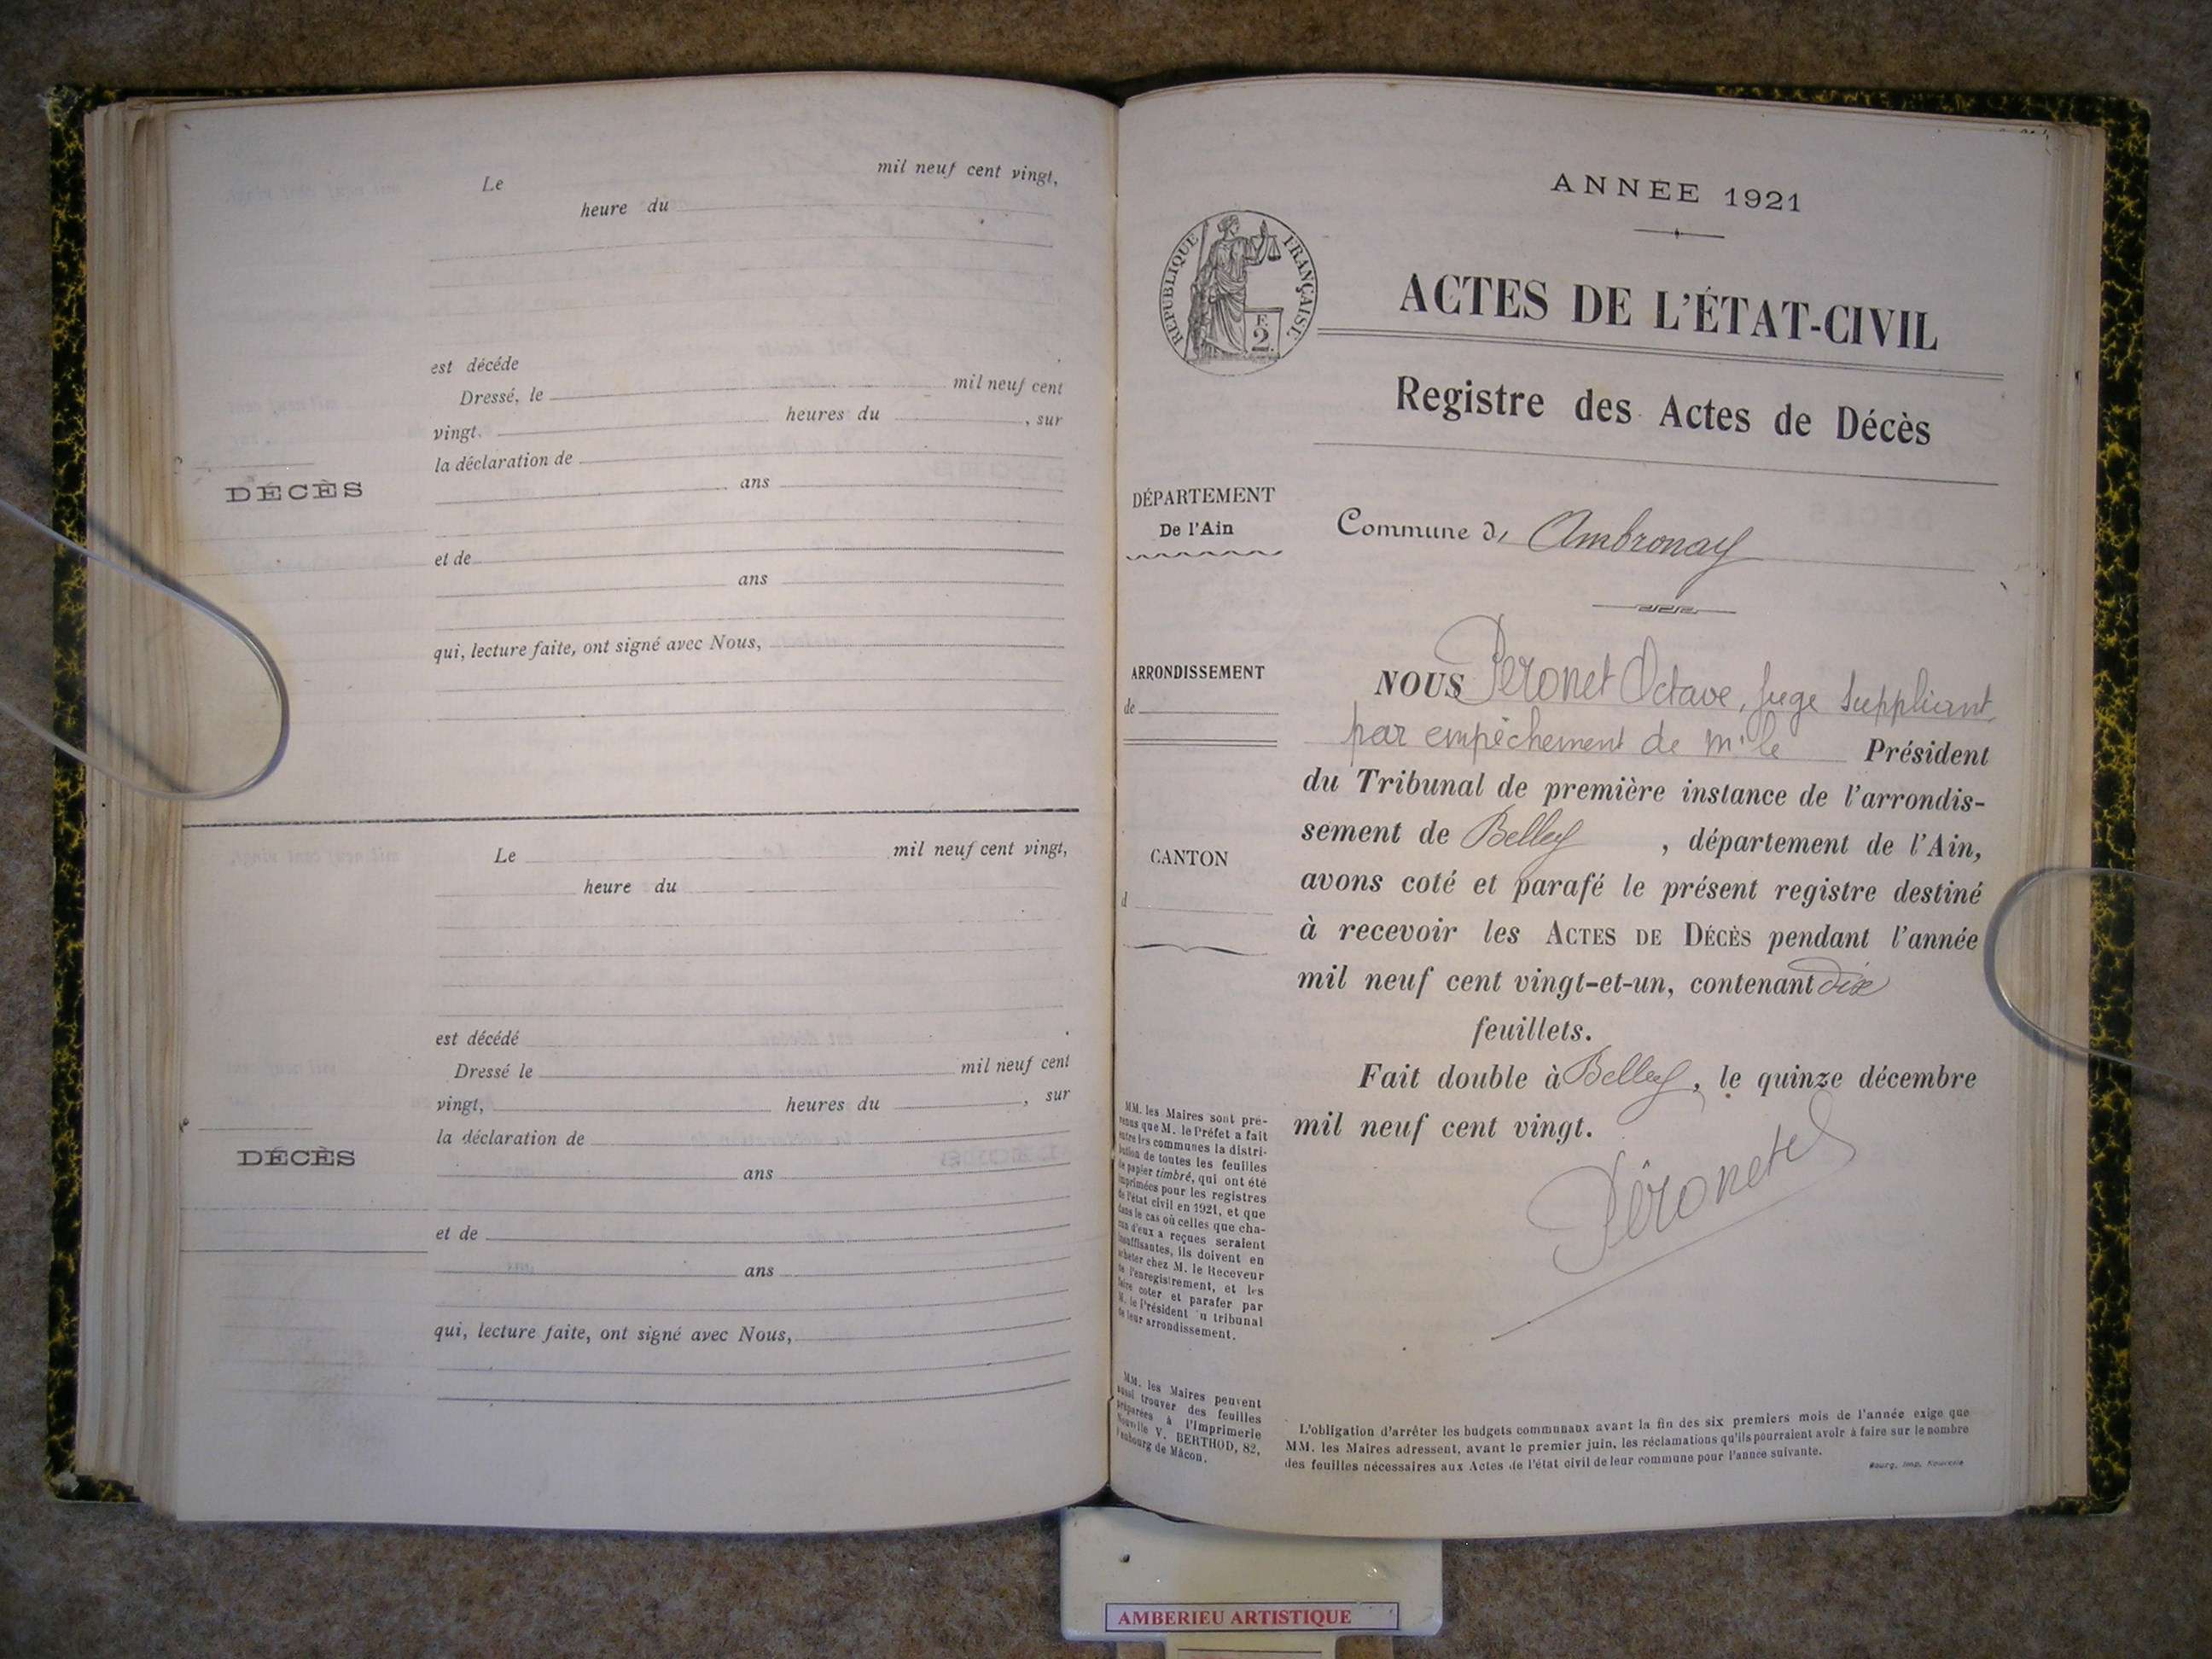 Le mil neuf cent vingt,
heure du
est décédé
Dressé, le mil neuf cent
vingt, heures du , sur
la déclaration de
ans
DÉCÈS
et de
ans
qui, lecture faite, ont signé avec Nous,
Le mil neuf cent vingt,
heure du
est décédé
Dressé le mil neuf cent
vingt, heures du , sur
la déclaration de
DÉCÈS
ans
et de
ans
qui, lecture faite, ont signé avec Nous,
ANNÉE 1921
RÉPUBLIQUE FRANÇAISE
F.
2.
ACTES DE L'ÉTAT-CIVIL
Registre des Actes de Décès
DÉPARTEMENT
De l'Ain
Commune d' Ambronay
ARRONDISSEMENT
de
CANTON
d
NOUS Péronet Octave, juge suppléant,
par empêchement de Mr le Président
du Tribunal de première instance de l'arrondis-
sement de Belley , département de l'Ain,
avons coté et parafé le présent registre destiné
à recevoir les ACTES DE DÉCÈS pendant l'année
mil neuf cent vingt-et-un, contenant dix
feuillets.
Fait double à Belley, le quinze décembre
mil neuf cent vingt.
Péronet
MM. les Maires sont pré-
venus que M. le Préfet a fait
entre les communes la distri-
bution de toutes les feuilles
de papier timbré, qui ont été
imprimées pour les registres
de l'état civil en 1921, et que
dans le cas où celles que cha-
cun d'eux a reçues seraient
insuffisantes, ils doivent en
acheter chez M. le Receveur
de l'enregistrement, et les
faire coter et parafer par
M. le Président du tribunal
de leur arrondissement.
MM. les Maires peuvent
aussi trouver des feuilles
préparées à l'Imprimerie
Nouvelle V. BERTHOD, 82,
Faubourg de Mâcon.
L'obligation d'arrêter les budgets communaux avant la fin des six premiers mois de l'année exige que
MM. les Maires adressent, avant le premier juin, les réclamations qu'ils pourraient avoir à faire sur le nombre
des feuilles nécessaires aux Actes de l'état civil de leur commune pour l'année suivante.
Bourg, Imp. Nouvelle
AMBERIEU ARTISTIQUE